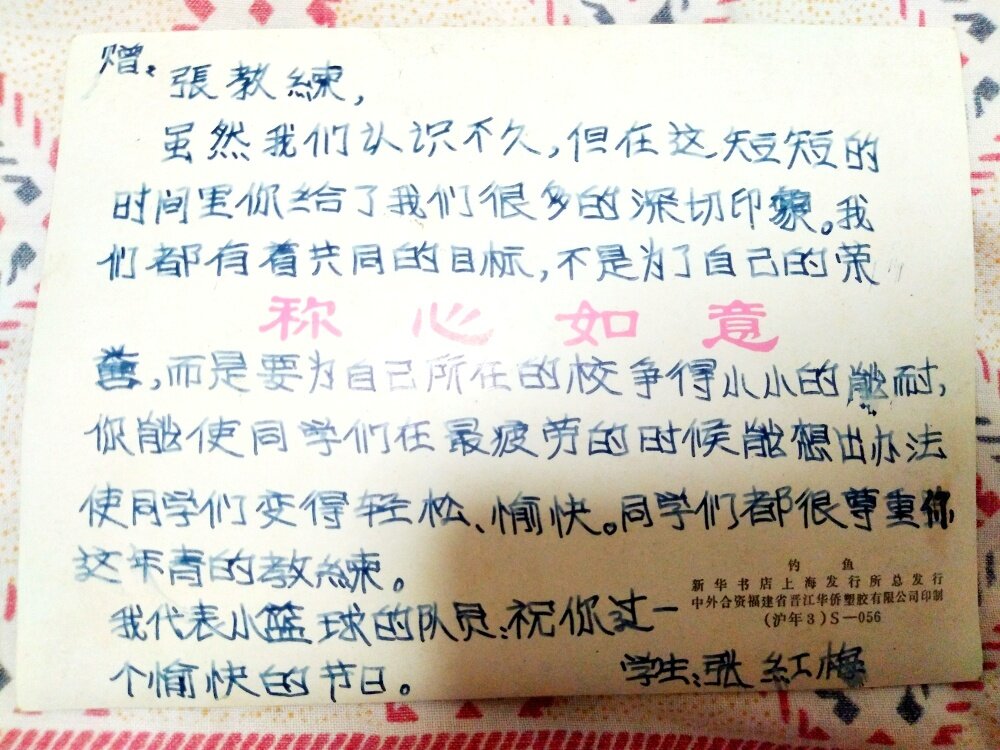 赠:
張教練,
虽然我们认识不久,但在这短短的
时间里你给了我们很多的深切印象。我
们都有着共同的目标,不是为了自己的荣
称心如意
誉,而是要为自己所在的校争得小小的能耐,
你能使同学们在最疲劳的时候能想出办法
使同学们变得轻松、愉快。同学们都很尊重你
这年青的教練。
钓鱼
新华书店上海发行所总发行
中外合资福建省晋江华侨塑胶有限公司印制
(沪年3)S—056
我代表小篮球的队员:祝你过一
个愉快的节日。
学生:张红梅